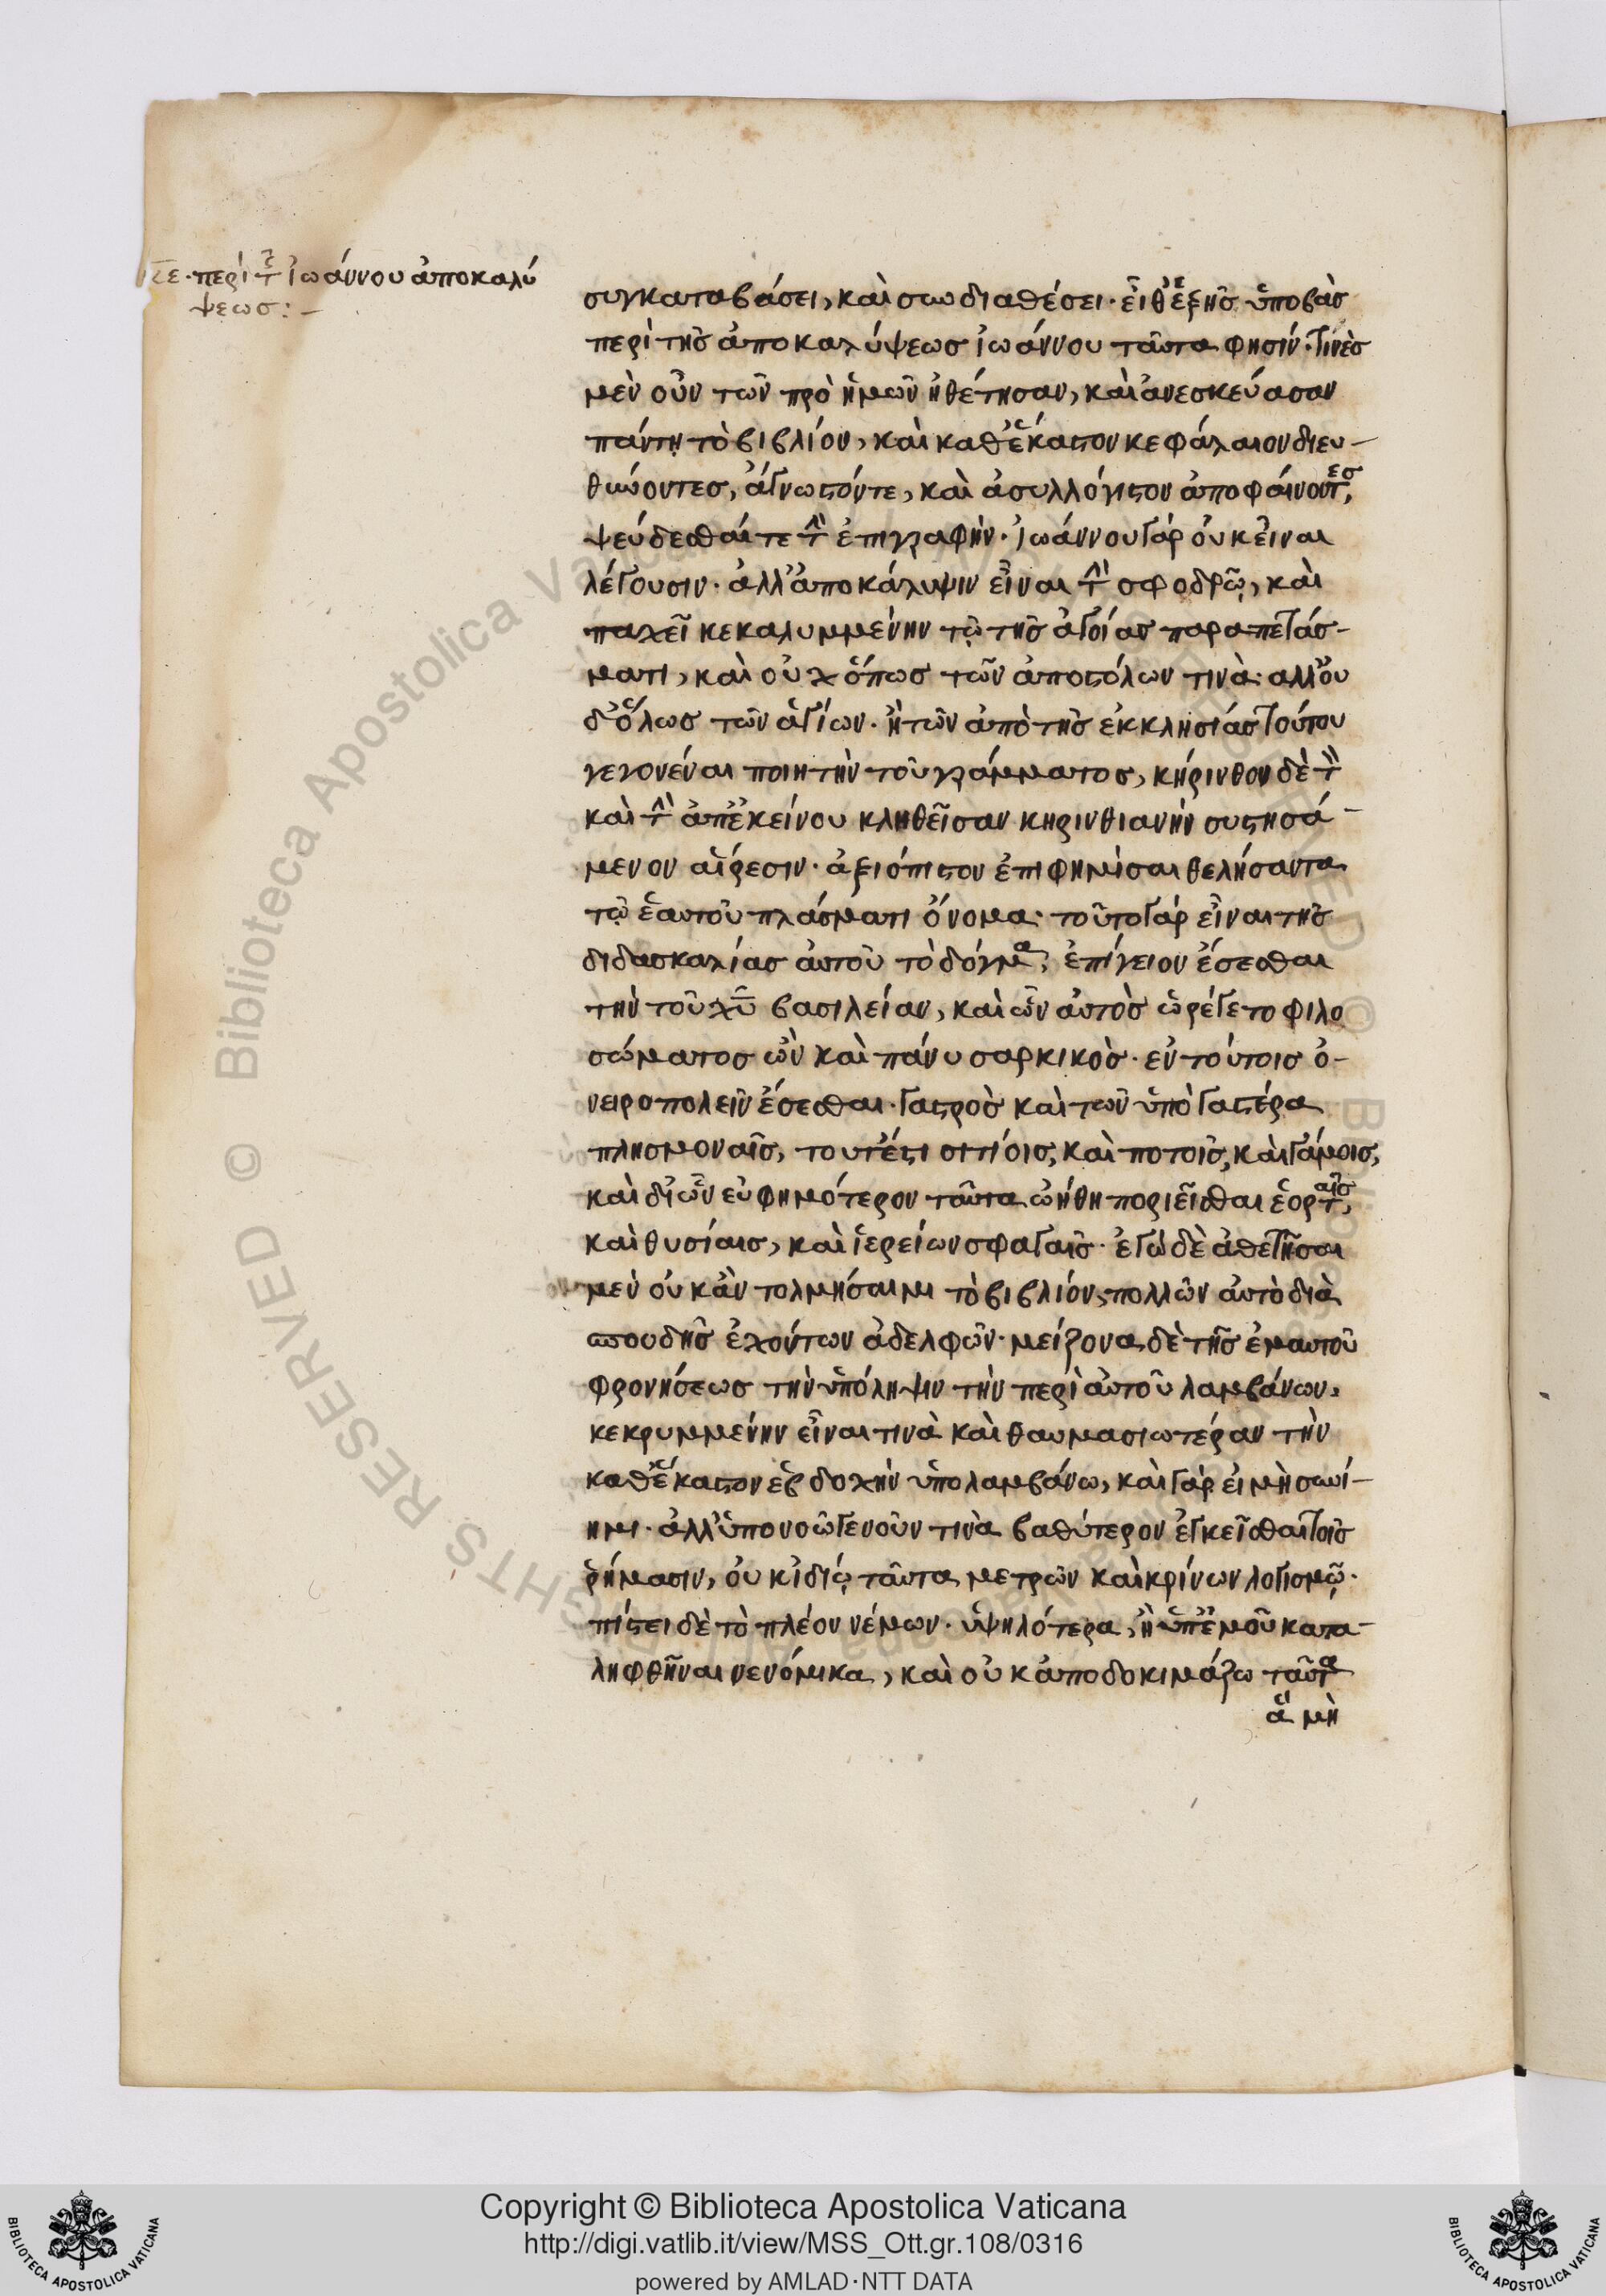 κε· περὶ τῆς ἰωάννου ἀποκαλύ
ψεως:–
συγκαταβάσει, καὶ συνδιαθέσει· εἶθ' ἑξῆς ὑποβὰς
περὶ τῆς ἀποκαλύψεως ἰωάννου ταῦτα φησίν· τινὲς
μὲν οὖν τῶν πρὸ ἡμῶν ἠθέτησαν, καὶ ἀνεσκεύασαν
πάντη τὸ βιβλίον, καὶ καθ' ἕκαστον κεφάλαιον διευ–
θύνοντες, ἄγνωστόν τε, καὶ ἀσυλλόγιστον ἀποφαίνοντες,
ψεύδεσθαί τε τὴν ἐπιγραφήν· ἰωάννου γὰρ οὐκ εἶναι
λέγουσιν· ἀλλ' ἀποκάλυψιν εἶναι τὴν σφοδρῶ, καὶ
παχεῖ κεκαλυμμένην τῶ τῆς ἀγνοίας παραπετάσ–
ματι, καὶ οὐχ ὅπως τῶν ἀποστόλων τινὰ· ἀλλ' οὐ
δ' ὅλως τῶν ἁγίων· ἢ τῶν ἀπὸ τῆς ἐκκλησίας τούτου
γεγονέναι ποιητὴν τοῦ γράμματος, κήρινθον δὲ τὸν
καὶ τὴν ἀπ' ἐκείνου κληθεῖσαν κηρινθιανὴν συστησά–
μενον αἵρεσιν· ἀξιόπιστον ἐπιφημίσαι θελήσαντα
τῶ ἑαυτοῦ πλάσματι ὄνομα· τοῦτο γὰρ εἶναι τῆς
διδασκαλίας αὐτοῦ τὸ δόγμα, ἐπίγειον ἔσεσθαι
τὴν τοῦ χυ βασιλείαν, καὶ ὧν αὐτὸς ὠρέγετο φιλο
σώματος ὢν καὶ πάνυ σαρκικὸς· ἐν τούτοις ὀ–
νειροπολεῖν ἔσεσθαι· γαστρὸς καὶ τῶν ὑπὸ γαστέρα
πλησμοναῖς, τουτέστι σιτίοις, καὶ ποτοῖς, καὶ γάμοις,
καὶ δι' ὧν εὐφημότερον ταῦτα ὠήθη ποριεῖσθαι ἑορταῖς,
καὶ θυσίαις, καὶ ἱερείων σφαγαῖς· ἐγὼ δὲ ἀθετῆσαι
μὲν οὐκ ἂν τολμήσαιμι τὸ βιβλίον, πολλῶν αὐτὸ διὰ
σπουδῆς ἐχόντων ἀδελφῶν· μείζονα δὲ τῆς ἐμαυτοῦ
φρονήσεως τὴν ὑπόληψιν τὴν περὶ αὐτοῦ λαμβάνων,
κεκρυμμένην εἶναι τινὰ καὶ θαυμασιωτέραν τὴν
καθ' ἕκαστον ἐκδοχὴν ὑπολαμβάνω, καὶ γὰρ εἰ μὴ συνί–
ημι· ἀλλ' ὑπονοῶ γενοῦν τινὰ βαθύτερον ἐγκεῖσθαι τοῖς
ῥήμασιν, οὐκ ἰδίῳ ταῦτα μετρῶν καὶ κρίνων λογισμῷ·
πίστει δὲ τὸ πλέον νέμων· ὑψηλότερα, ἢ ὑπ' ἐμοῦ κατα–
ληφθῆναι νενόμικα, καὶ οὐκ ἀποδοκιμάζω ταῦτα
ἃ μὴ
© Biblioteca Apostolica Vaticana
RIGHTS RESERVED
Copyright © Biblioteca Apostolica Vaticana
http://digi.vatlib.it/view/MSS_Ott.gr.108/0316
powered by AMLAD·NTT DATA
BIBLIOTECA APOSTOLICA VATICANA
BIBLIOTECA APOSTOLICA VATICANA